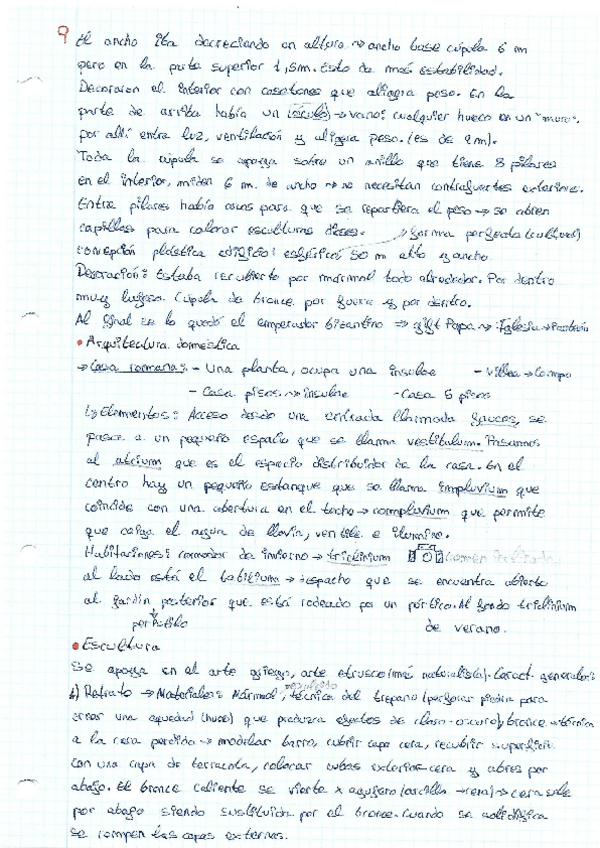 9
El ancho iba decreciendo en altura → ancho base cúpula 6 m
pero en la parte superior 1,5m. Esto da más estabilidad.
Decoraron el interior con casetones que aligera peso. En la
parte de arriba había un óculo → vano: cualquier hueco en un "muro",
por allí entra luz, ventilación y aligera peso. (es de 9m).
Toda la cúpula se apoya sobre un anillo que tiene 8 pilares
en el interior, miden 6 m. de ancho → no necesitan contrafuertes exteriores.
Entre pilares había para que se repartiera el peso → se abren
capillas para colocar esculturas dioses. → forma perfecta (culturas)
concepción plástica edificio: esférica 50 m alto y ancho
Decoración: Estaba recubierto por mármol todo alrededor. Por dentro
muy lujoso. Cúpula de bronce por fuera y por dentro.
Al final se lo quedó el emperador bizantino ⇒ Papa → Iglesia → Panteón
• Arquitectura doméstica
→ Casa romana: - Una planta, ocupa una insulae - Villae → Campo
- Casa pisos → insulae - Casa 5 pisos
↳ Elementos: Acceso desde una entrada llamada fauces, se
pasa a un pequeño espacio que se llama vestibulum. Pasamos
al atrium que es el espacio distribuidor de la casa. En el
centro hay un pequeño estanque que se llama impluvium que
coincide con una abertura en el techo → compluvium que permite
que caiga el agua de lluvia, ventile e ilumine.
Habitaciones: comedor de invierno → triclinium
al lado está el tablinum → despacho que se encuentra abierto
al jardín posterior que está rodeado por un pórtico. Al fondo triclinium
peristilo de verano.
• Escultura
Se apoya en el arte griego, arte etrusco (más naturalista). Caract. generales:
1) Retrato → Materiales: Mármol, técnica del trepano (perforar piedra para
crear una oquedad (hueco) que produzca efectos de claro-oscuro), bronce → técnica
a la cera perdida → modelar barro, cubrir capa cera, recubrir superficie
con una capa de terracota, colocar tubos exterior-cera y abres por
abajo. El bronce caliente se vierte x agujero (arcilla → cera) → cera sale
por abajo siendo sustituida por el bronce. Cuando se solidifica
se rompen las capas externas.